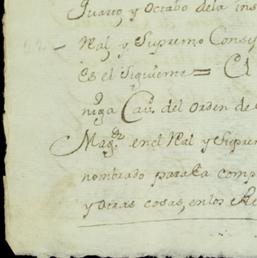 Quarto, y Octabo dela ins
Real, y Supremo Consej
es el Siguiente = El
niga Cau.º del orden de
Mag.d en el Real y Suprem
nombrado para la comp
y otras cosas, en los Re